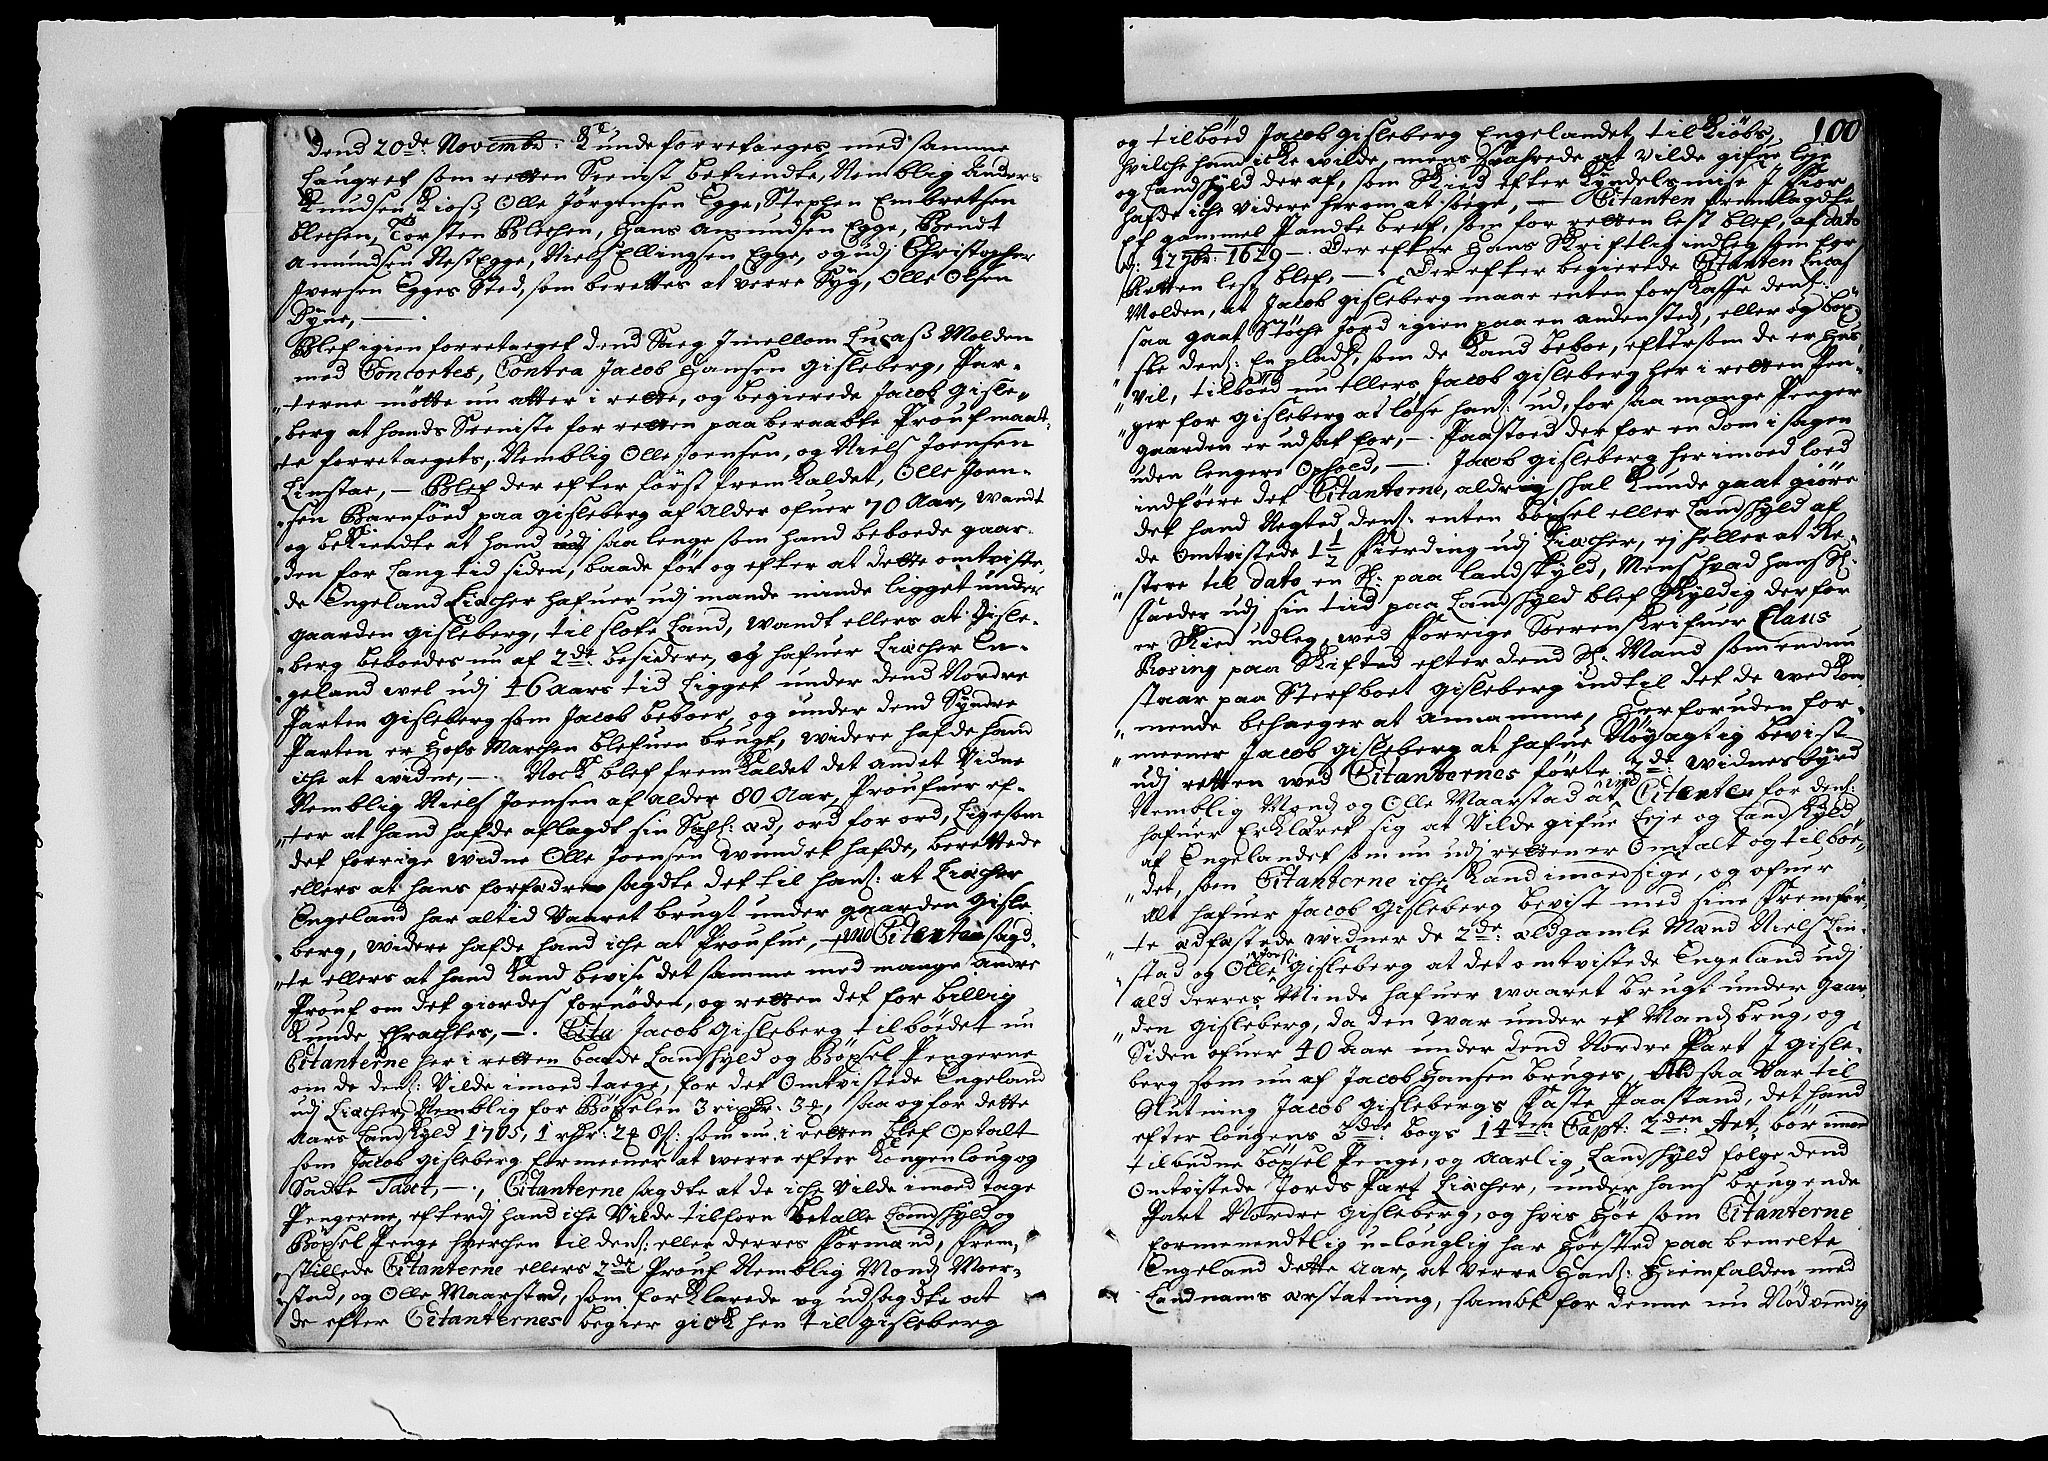 dend 20de Novembr: Kunde forretaeges med samme
Laugret som retten Seenist bekiendte, Nemblig Anders
Knudsen Kioß, Olle Jörgensen Egge, Stephen Embretsen
Blechen, Torsten Blechen, Hans Amundsen Egge, Bendt
Amundsen NestEgge, Niels Ellingsen Egge, og udj Christopher
Iversen Egges Sted, som berettes at verre Syg, Olle Olsen
Dyne, —
Blef igien forretaeget dend Saeg Imellom Lucaß Molden
med Concortes, Contra Jacob Hansen Gisleberg, Par-
terne mötte nu atter i rette, og begierede Jacob Gisle-
berg at hands Seeniste for retten paaberaabte Prouf maat-
te forretaegets, Nemblig Olle Joensen, og Niels Joensen
Linstae, — Blef der efter först fremkaldet, Olle Joen-
sen Barnföed paa Gisleberg af Alder ofuer 70 Aar, wandt
og bekiendte at hand udj saa lenge som hand beboede gaar-
den for lang tid siden, baade för og efter at dette omtviste-
de Engeland Liacher hafuer udj mande minde ligget under
gaarden Gisleberg, til slote Land, wandt ellers at Gisle-
berg beboedes nu af 2de besidere, og hafuer Liacher En-
geland wel udj 46 aars tid Ligget under dend Nordre
Parten Gisleberg som Jacob beboer, og under dend Syndre
Parten er Hofs Marchen blefuen brugt, widere hafde hand
iche at widne, — Nock blef fremkaldet det andet Vidne
Nemblig Niels Joensen af alder 80 Aar, Proufuer ef-
ter at hand hafde aflagdt sin Sahl: æd, ord for ord, Ligesom
det forrige widne Olle Joensen wundet hafde, berettede
ellers at hans forfædre sagdte det til hanß: at Liacher
Engeland har altid Vaaret brugt under gaarden Gisle-
berg, widere hafde hand iche at Proufue, — Citenten sagd-
te ellers at hand Kand bevise det samme med mange andre
Prouf om det giordes fornöden, og retten det for billig
Kunde Erachtes, —. Jacob Gisleberg tilböedet nu
Citanterne her i retten baade Landskyld og Böxsel Pengerne
om de denß: Vilde imoed taege, for det Omtvistede Engeland
udj Liacher, Nemblig for Böxselen 3 rixdr: 3 , saa og for dette
Aars Landskyld 1705, 1 rdr: 2 8ß: som nu i retten blef Optalt
som Jacob Gisleberg formeener at werre efter Kongen loug og
Sadte Taxt, —, Citanterne sagdte at de iche Vilde imoed tage
Pengerne, efterdj hand iche Vilde tilforn betalle Landskyld og
Böxsel Penge hverchen til denß: eller derres Formænd, Frem-
stillede Citanterne ellers 2de Prouf Nemblig Monß Moer-
stad, og Olle Maarstad, som forklarede og udsagdte at
de efter Citanternes begier gick hen til Gisleberg
100
og tilböed Jacob Gisleberg Engelandet til Kiöbs,
hvilche hand icke wilde, mens svahrede at vilde gifue leje
og Landskyld der af, som Skied efter Kyndelsmise I fior
hafde iche videre herom at seege, — Citanten fremlagdte
et gammel Pandte bref, som for retten lest blef, af dato
d: 12 9br: 1629 —. Der efter hans Skriftlig indleg som for
Retten lest blef, —. Der efter begierede Citanten Lucas
Molden, at Jacob Gisleberg maae enten forskaffe denß:
saa gaat Støche Jord igien paa en anden sted, eller og böx-
ske denß: En pladß, som de Kand beboe, eftersom de er hus-
vil, tilböed nu ellers Jacob Gisleberg her i retten Pen-
ger for Gisleberg at löse hanß: ud, for saa mange Penger
gaarden er udsat for, —. Paastoed der for en dom i sagen
uden lengere Ophold, —. Jacob Gisleberg her imoed loed
indföere det Citanterne, aldrig skal kunde gaat giöre
det hand Negted, denß: enten böxsel eller Landskyld af
de Omtvistede 1½ Fierding udj Liacher, ej heller at Re-
stere til dato en ß: paa landskyld, Mens hvad hans Sl:
Faeder udj sin tid paa Landskyld blef skyldig derfor
er Skied udleg, wed forrige Soerenskrifuer Claus
Rosing paa Skifted efter dend Sl: Mand som endnu
staar paa Sterfboet Gisleberg indtil det de wedkom-
mende behaeger at annamme, Herforuden for-
meener Jacob Gisleberg at hafue Nöyagtig bevist
udj retten wed Citanternes förte 2de: widnesbyrd
Nemblig Monß og Olle Maarstad at Citenten for denß:
hafuer Erklæret sig at Vilde gifue Leje og Landskyld
af Engelandet som nu udj retten er Omtalt og tilböe-
det, som Citanterne iche Kand imoedsige, og ofuer
Alt hafuer Jacob Gisleberg bevist med sine Fremför-
te ædfæstede widner de 2de: ældgamle Mænd Niels Lin-
stad og Olle Gisleberg at det omtvistede Engeland udj
ald derres Minde hafuer waaret brugt under Gaar-
den Gisleberg, da den war under et Mandß brug, og
Siden ofuer 40 Aar under dend Nordre Part I Gisle-
berg som nu af Jacob Hansen bruges, Altsaa Var til
Slutning Jacob Gislebergs faste Paastand, det hand
efter lougens 3de: bogs 14ten: Capt: 2den Art, bör imod
tilbudne böxsel Penge, og Aarlig Landskyld folge dend
Omtvistede Jords Part Liacher, under hans brugende
Part Nordre Gisleberg, og hvis Höe som Citanterne
formenendtlig u-louglig har Höested paa bemelte
Engeland dette Aar, at Verre hanß: Hiemfalden med
Landnams ærstatning, sambt for denne nu Nödvendig